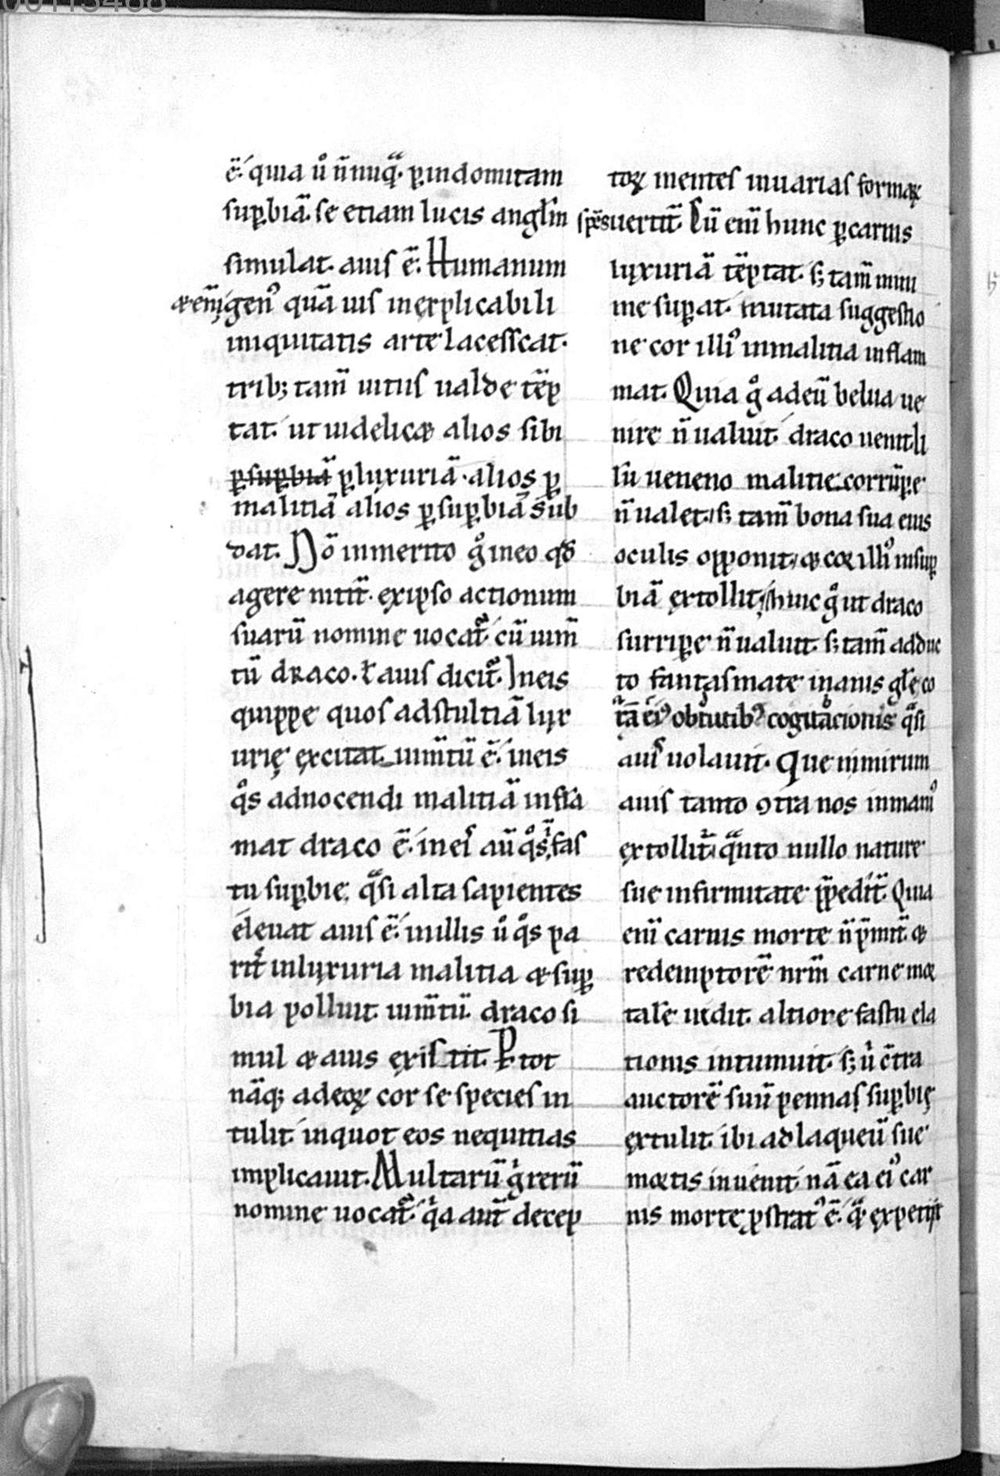 ē. quia ů n̄nuqᷓ. ꝑ indomitam
suꝑbiā. se etiam lucis angl̄m
simulat. auis ē. Humanum
& eni᷒ gen᷒ quāuis inexplicabili
iniquitatis arte lacesscat.
trib; tam̄ uitiis ualde tēp
tat. ut uidelicæ alios sibi
ꝑ suꝑbiā ꝑ luxuriā. alios ꝑ
malitiā alios ꝑ suꝑbiā sub
dat. Nō inmerito gͦ in eo qđ
agere nitit᷑. ex ipso actionum
suarū nomine uocat᷑. cū ium̄
tū draco. ł auis dicit᷑. In eis
quippe quos ad stultiā lux
urię excitat. ium̄tū ē. in eis
qͦs ad nocendi malitiā inflā
mat draco ē. in eis aū qͦs in fas
tu suꝑbię. qᷓsi alta sapientes
eleuat auis ē. in illis ů qͦs pa
rit᷑ in luxuria malitia & suꝑ
bia polluit. ium̄tū. draco si
mul & auis existit. P tot
nāq; adeoꝝ cor se species in
tulit. in quot eos nequitias
implicauit. Multarū gͥ rerū
nomine uocat᷑. qͥa aut̄ decep
toꝝ mentes in uarias formaꝝ
spēs uertit᷑. Cū eni᷒ hunc ꝑ carnis
luxuriā tēptat. s; tam̄ mini
me suꝑat. mutata suggestio
ne cor illi᷒ in malitia inflam
mat. Quia gͦ ad eū belua ue
nire n̄ ualuit. draco uenit. Il
lū ueneno malitie corrūꝑe
n̄ ualet. s; tam̄ bona sua eius
oculis opponit. & cor illi᷒ in suꝑ
biā extollit. hinc gͦ ut draco
surriꝑe n̄ ualuit. s; tam̄ adduc
to fantasmate inanis gl̄ę co
rā ei᷒ obtutib᷒ cogitacionis qᷓsi
auis uolauit. Que nimirum
auis tanto ꝯtra nos inmani᷒
extollit᷑. qᷓnto nullo nature
sue infirmitate p̄pedit᷑. Quia
eni᷒ carnis morte n̄ p̄mit᷑. &
redemptorē nrm̄ carne mor
talē uidit. altiore fastu ela
tionis intumuit. s; ů cͣtra
auctorē suū pennas suꝑbię
extulit. ibi ad laqueū sue
mortis inuenit. nā ea ei᷒ car
nis morte ꝓstrat᷒ ē. qᷓm expetiit